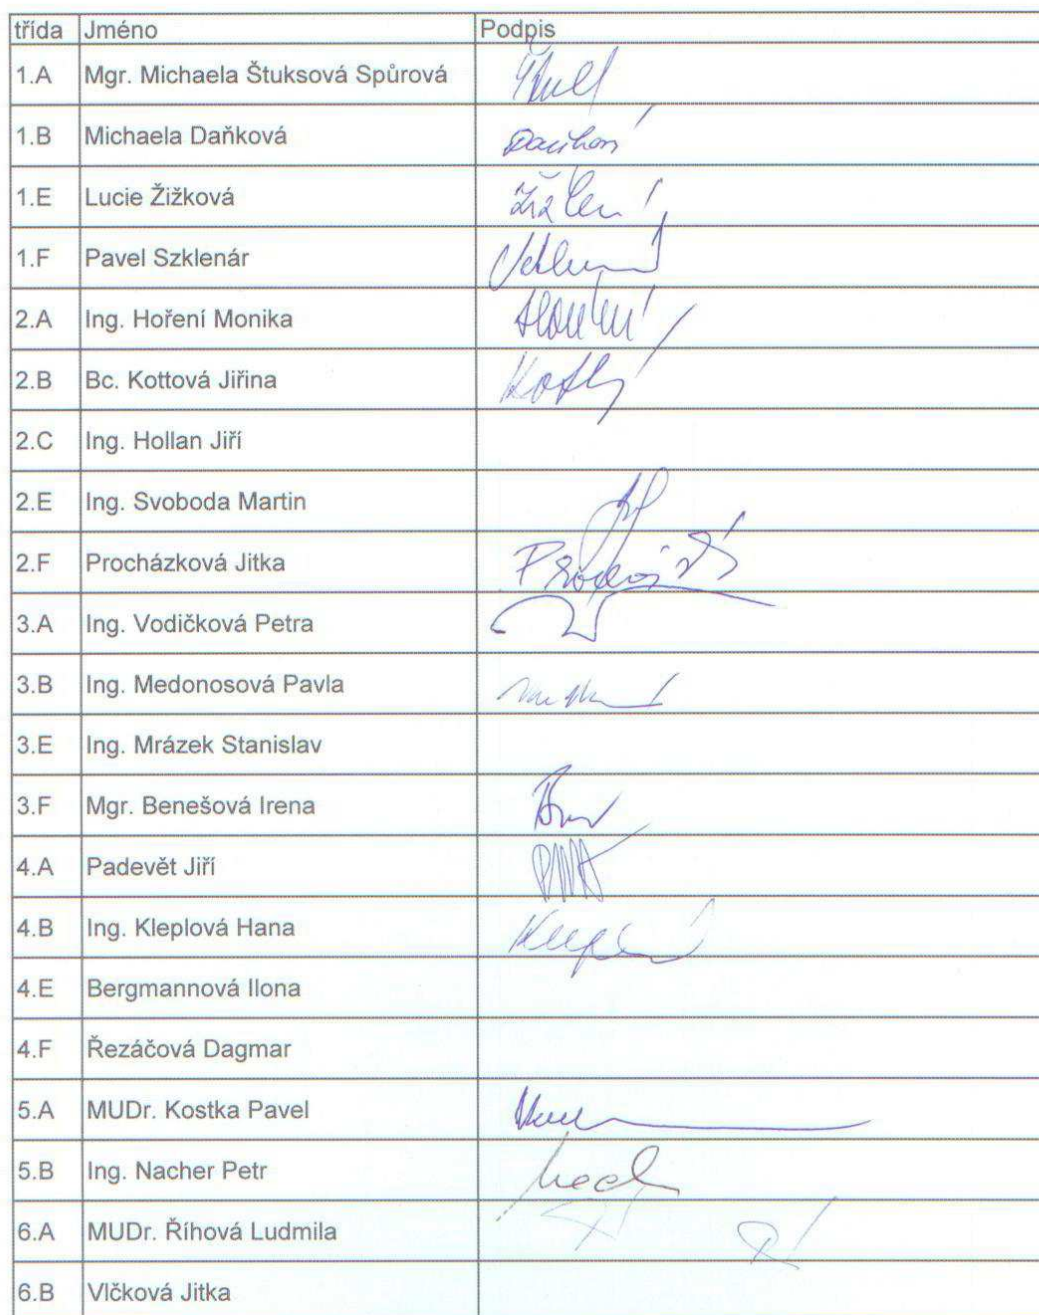 třída Jméno Podpis
1.A Mgr. Michaela Štuksová Spůrová
1.B Michaela Daňková
1.E Lucie Žižková
1.F Pavel Szklenár
2.A Ing. Hoření Monika
2.B Bc. Kottová Jiřina
2.C Ing. Hollan Jiří
2.E Ing. Svoboda Martin
2.F Procházková Jitka
3.A Ing. Vodičková Petra
3.B Ing. Medonosová Pavla
3.E Ing. Mrázek Stanislav
3.F Mgr. Benešová Irena
4.A Padevět Jiří
4.B Ing. Kleplová Hana
4.E Bergmannová Ilona
4.F Řezáčová Dagmar
5.A MUDr. Kostka Pavel
5.B Ing. Nacher Petr
6.A MUDr. Říhová Ludmila
6.B Vlčková Jitka